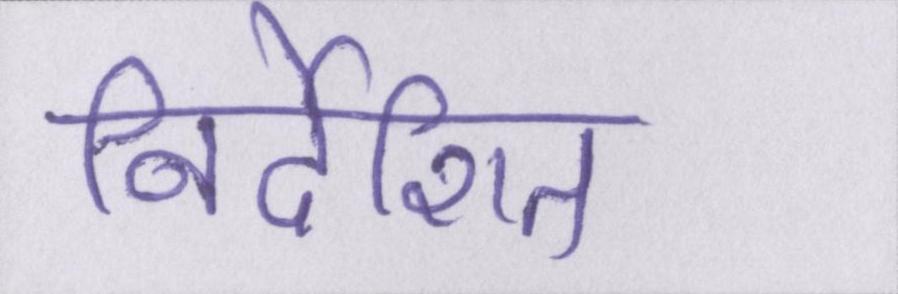 निर्देशित